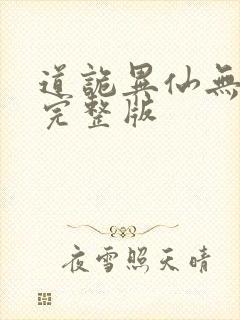 道詭異仙無
完整版
夜雪照天晴